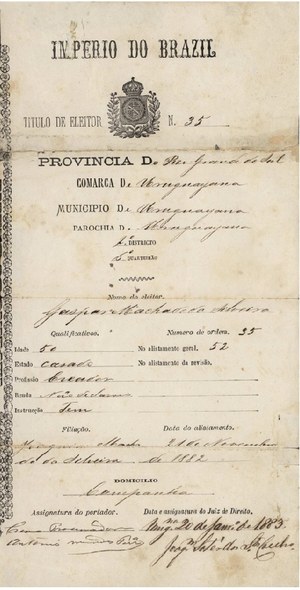 IMPERIO DO BRAZIL
TITULO DE ELEITOR N. 35
PROVINCIA D. Rio Grande do Sul
COMARCA De Uruguayana
MUNICIPIO De Uruguayana
PAROCHIA D. Uruguayana
DISTRICTO
QUARTEIRÃO
Nome do eleitor.
Gaspar Machado da Silveira
Qualificativos. Numero de ordem. 35
Idade 50 No alistamento geral. 52
Estado casado No alistamento da revisão.
Profissão Creador
Renda
Instrucção Tem
Filiação. Data do alistamento.
Joaquim Macha 21 de Novembro
do da Silveira de 1882
DOMICILIO
Campanha
Assignatura do portador. Data e assignatura do Juiz de Direito.
20 de Janr. de 1883.
Antonio